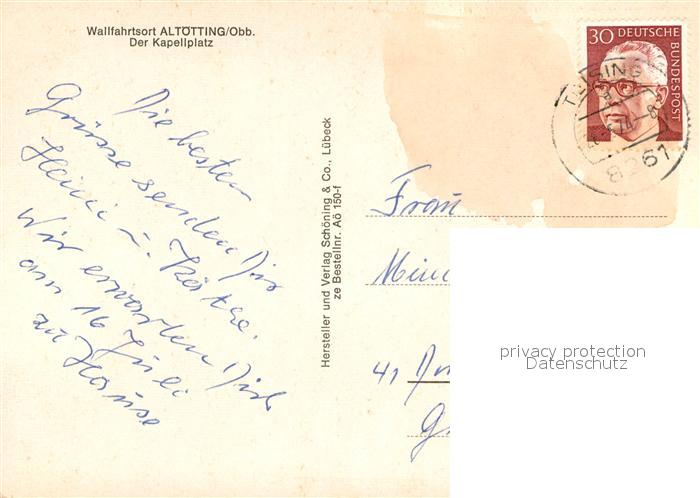 Wallfahrtsort ALTÖTTING/Obb.
Der Kapellplatz
Die besten
Grüsse senden Dir
Heini u. Käthe.
Wir erwarten Dich
am 16 Juli
zu Hause
Hersteller und Verlag Schöning & Co., Lübeck
ze Bestellnr. Aö 150-f
30 DEUTSCHE
BUNDESPOST
TEISING
8261
Frau
41
privacy protection
Datenschutz